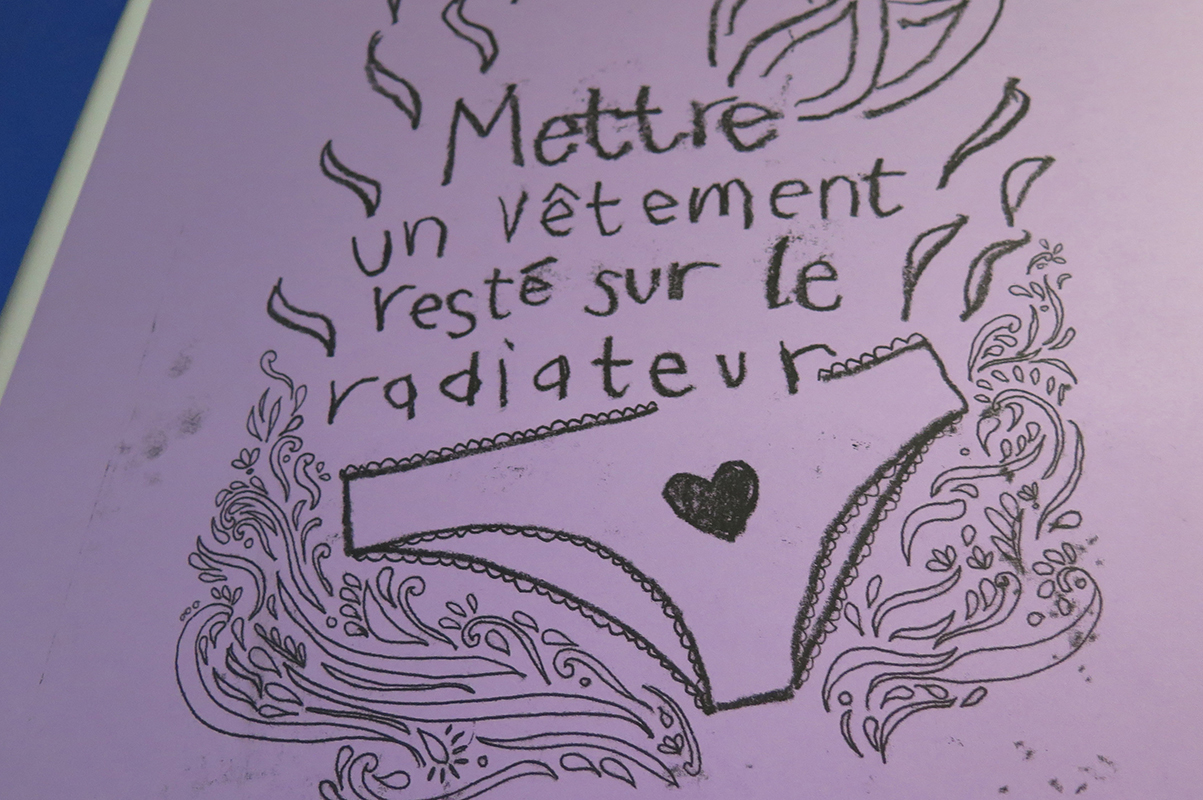 Mettre
un vêtement
resté sur le
radiateur